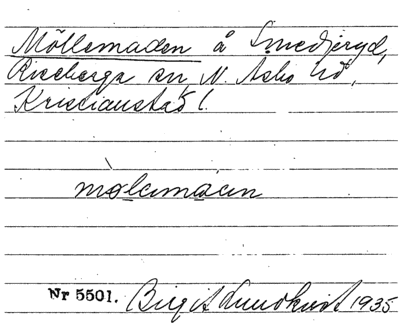 Möllemaden å Smedjeryd,
Riseberga sn, N. Åsbo hd,
Kristianstads l.
mølemaen
Nr 5501. Birgit Lundkvist 1935